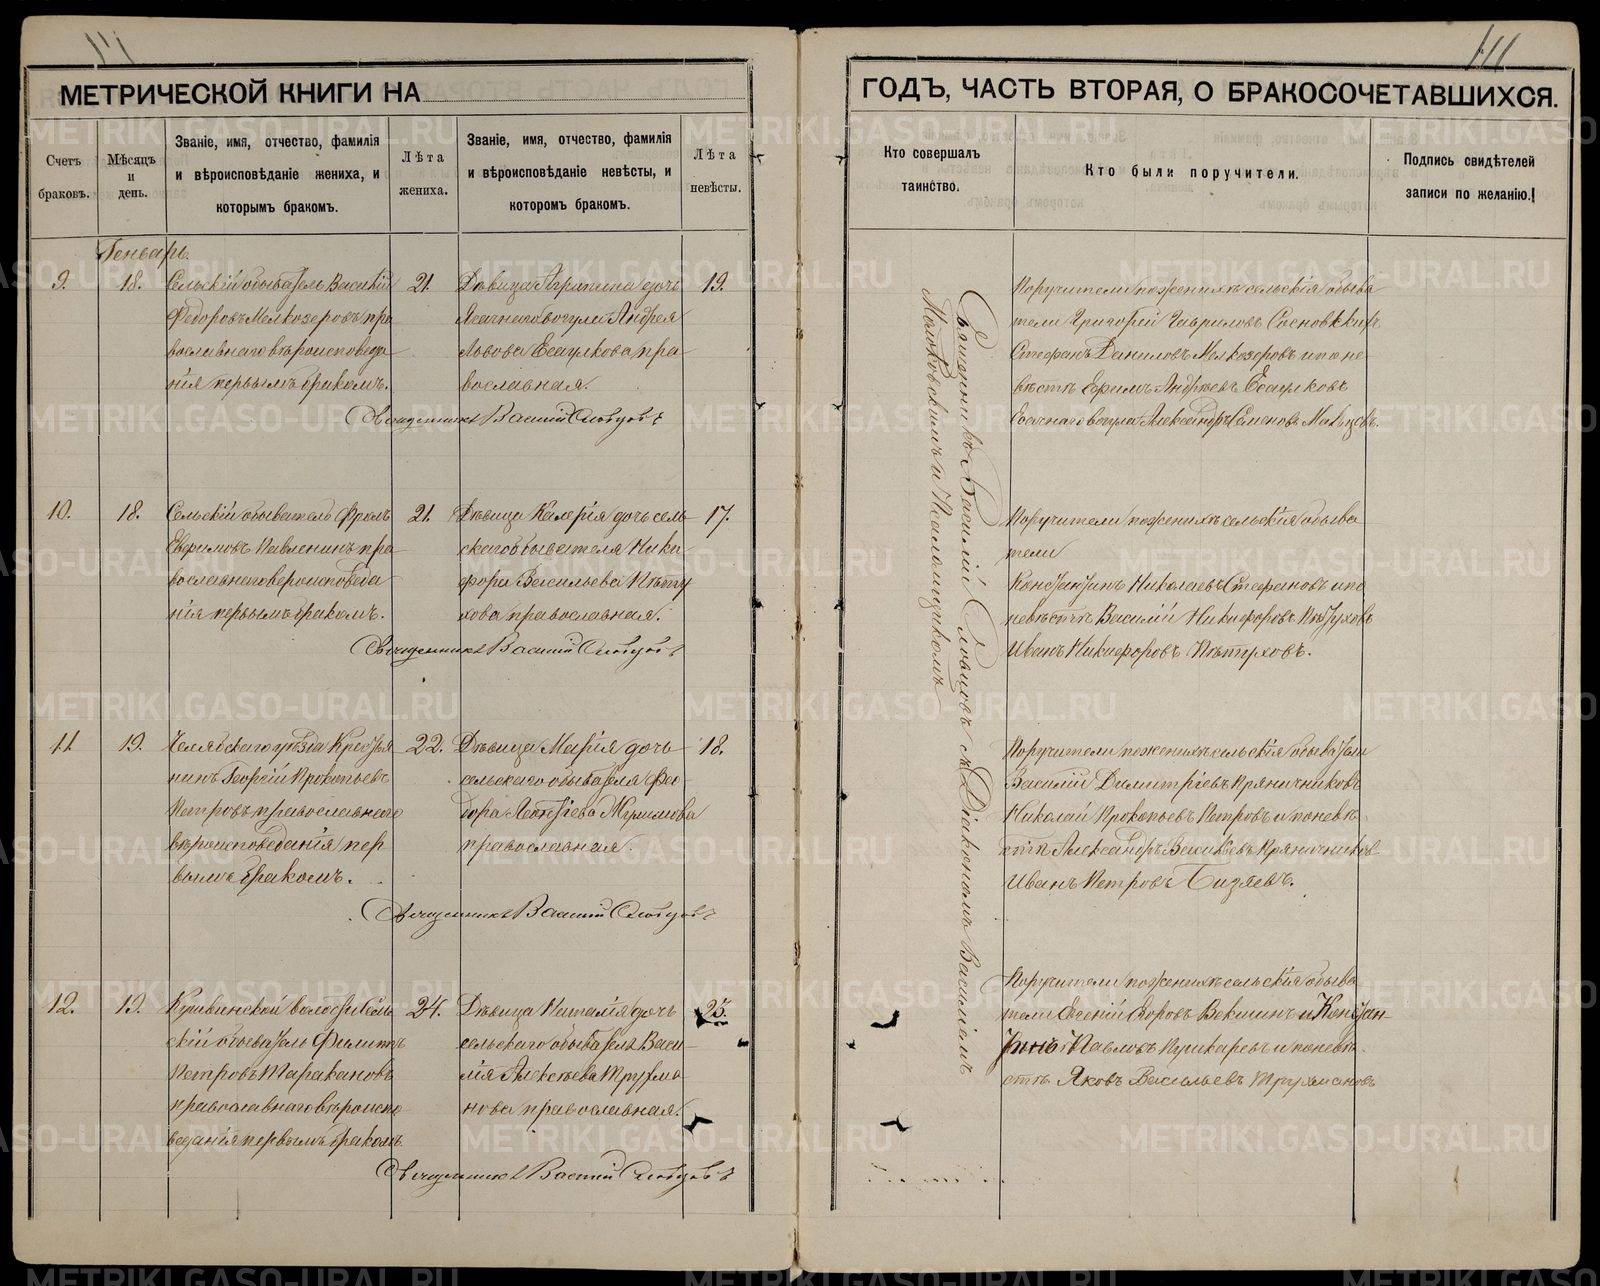 МЕТРИЧЕСКОЙ КНИГИ НА
Счетъ браковъ.
Мѣсяцъ и день.
Званіе, имя, отчество, фамилія и вѣроисповѣданіе жениха, и которымъ бракомъ.
Лѣта жениха.
Званіе, имя, отчество, фамилія и вѣроисповѣданіе невѣсты, и которомъ бракомъ.
Лѣта невѣсты.
Генварь.
9.
18.
Сельскій обыватель Василій
Федоровъ Мелкозеровъ пра
вославнаго вѣроисповѣда
нія первымъ бракомъ.
21.
Дѣвица Агрипина дочь
Ясачнаго вогула Андрея
Львова Есаулкова пра
вославная.
19.
Священникъ Василій Словцовъ
10.
18.
Сельскій обыватель Фролъ
Евфимовъ Павленинъ пра
вославнаго вероисповѣда
нія первымъ бракомъ.
21.
Дѣвица Калерія дочь сель
скаго обывателя Ники
фора Васильева Пѣту
хова православная.
17.
Священникъ Василій Словцовъ
11
19.
Челябскаго уѣзда Крестья
нинъ Георгій Прокопьевъ
Петровъ православнаго
вѣроисповеданія пер
вымъ бракомъ.
22.
Дѣвица Марія дочь
сельскаго обывателя Фе
дора
православная.
18.
Священникъ Василій Словцовъ
12.
19.
волости Сель
скій обыватель Филипъ
Петровъ Таракановъ
православнаго вѣроиспо
веданія первымъ бракомъ
24.
Дѣвица Наталія дочь
сельскаго обывателя Васи
лія Алексѣева Трухма
нова православная.
23.
Священникъ Василій Словцовъ
111
ГОДЪ, ЧАСТЬ ВТОРАЯ, О БРАКОСОЧЕТАВШИХСЯ.
Кто совершалъ таинство.
Кто были поручители.
Подпись свидѣтелей записи по желанію.
Священникъ Василій Словцовъ съ Діакономъ Василіемъ
и Псаломщикомъ
Поручители по женихѣ сельскія обыва
тели Григорій Гавриловъ Сосновскихъ
Стефанъ Даниловъ Мелкозеровъ и по не
вѣстѣ Ефимъ Андреевъ Есаулковъ
Ясачнаго вогула Александръ Семеновъ Мальцевъ.
Поручители по женихѣ сельскія обыва
тели
Константинъ Николаевъ Стефановъ и по
невѣстѣ Василій Никифоровъ Пѣтуховъ
Иванъ Никифоровъ Пѣтуховъ.
Поручители по женихѣ сельскія обыватели
Василій Димитріевъ Пряничниковъ
Николай Прокопьевъ Петровъ и по невѣ
стѣ Александръ Васильевъ Пряничниковъ
Иванъ Петровъ Бизяевъ.
Поручители по женихѣ сельскія обыва
тели Евгеній Векшинъ и Констан
тинъ Павловъ Пушкаревъ и по невѣ
стѣ Яковъ Васильевъ Трухмановъ
METRIKI.GASO-URAL.RU